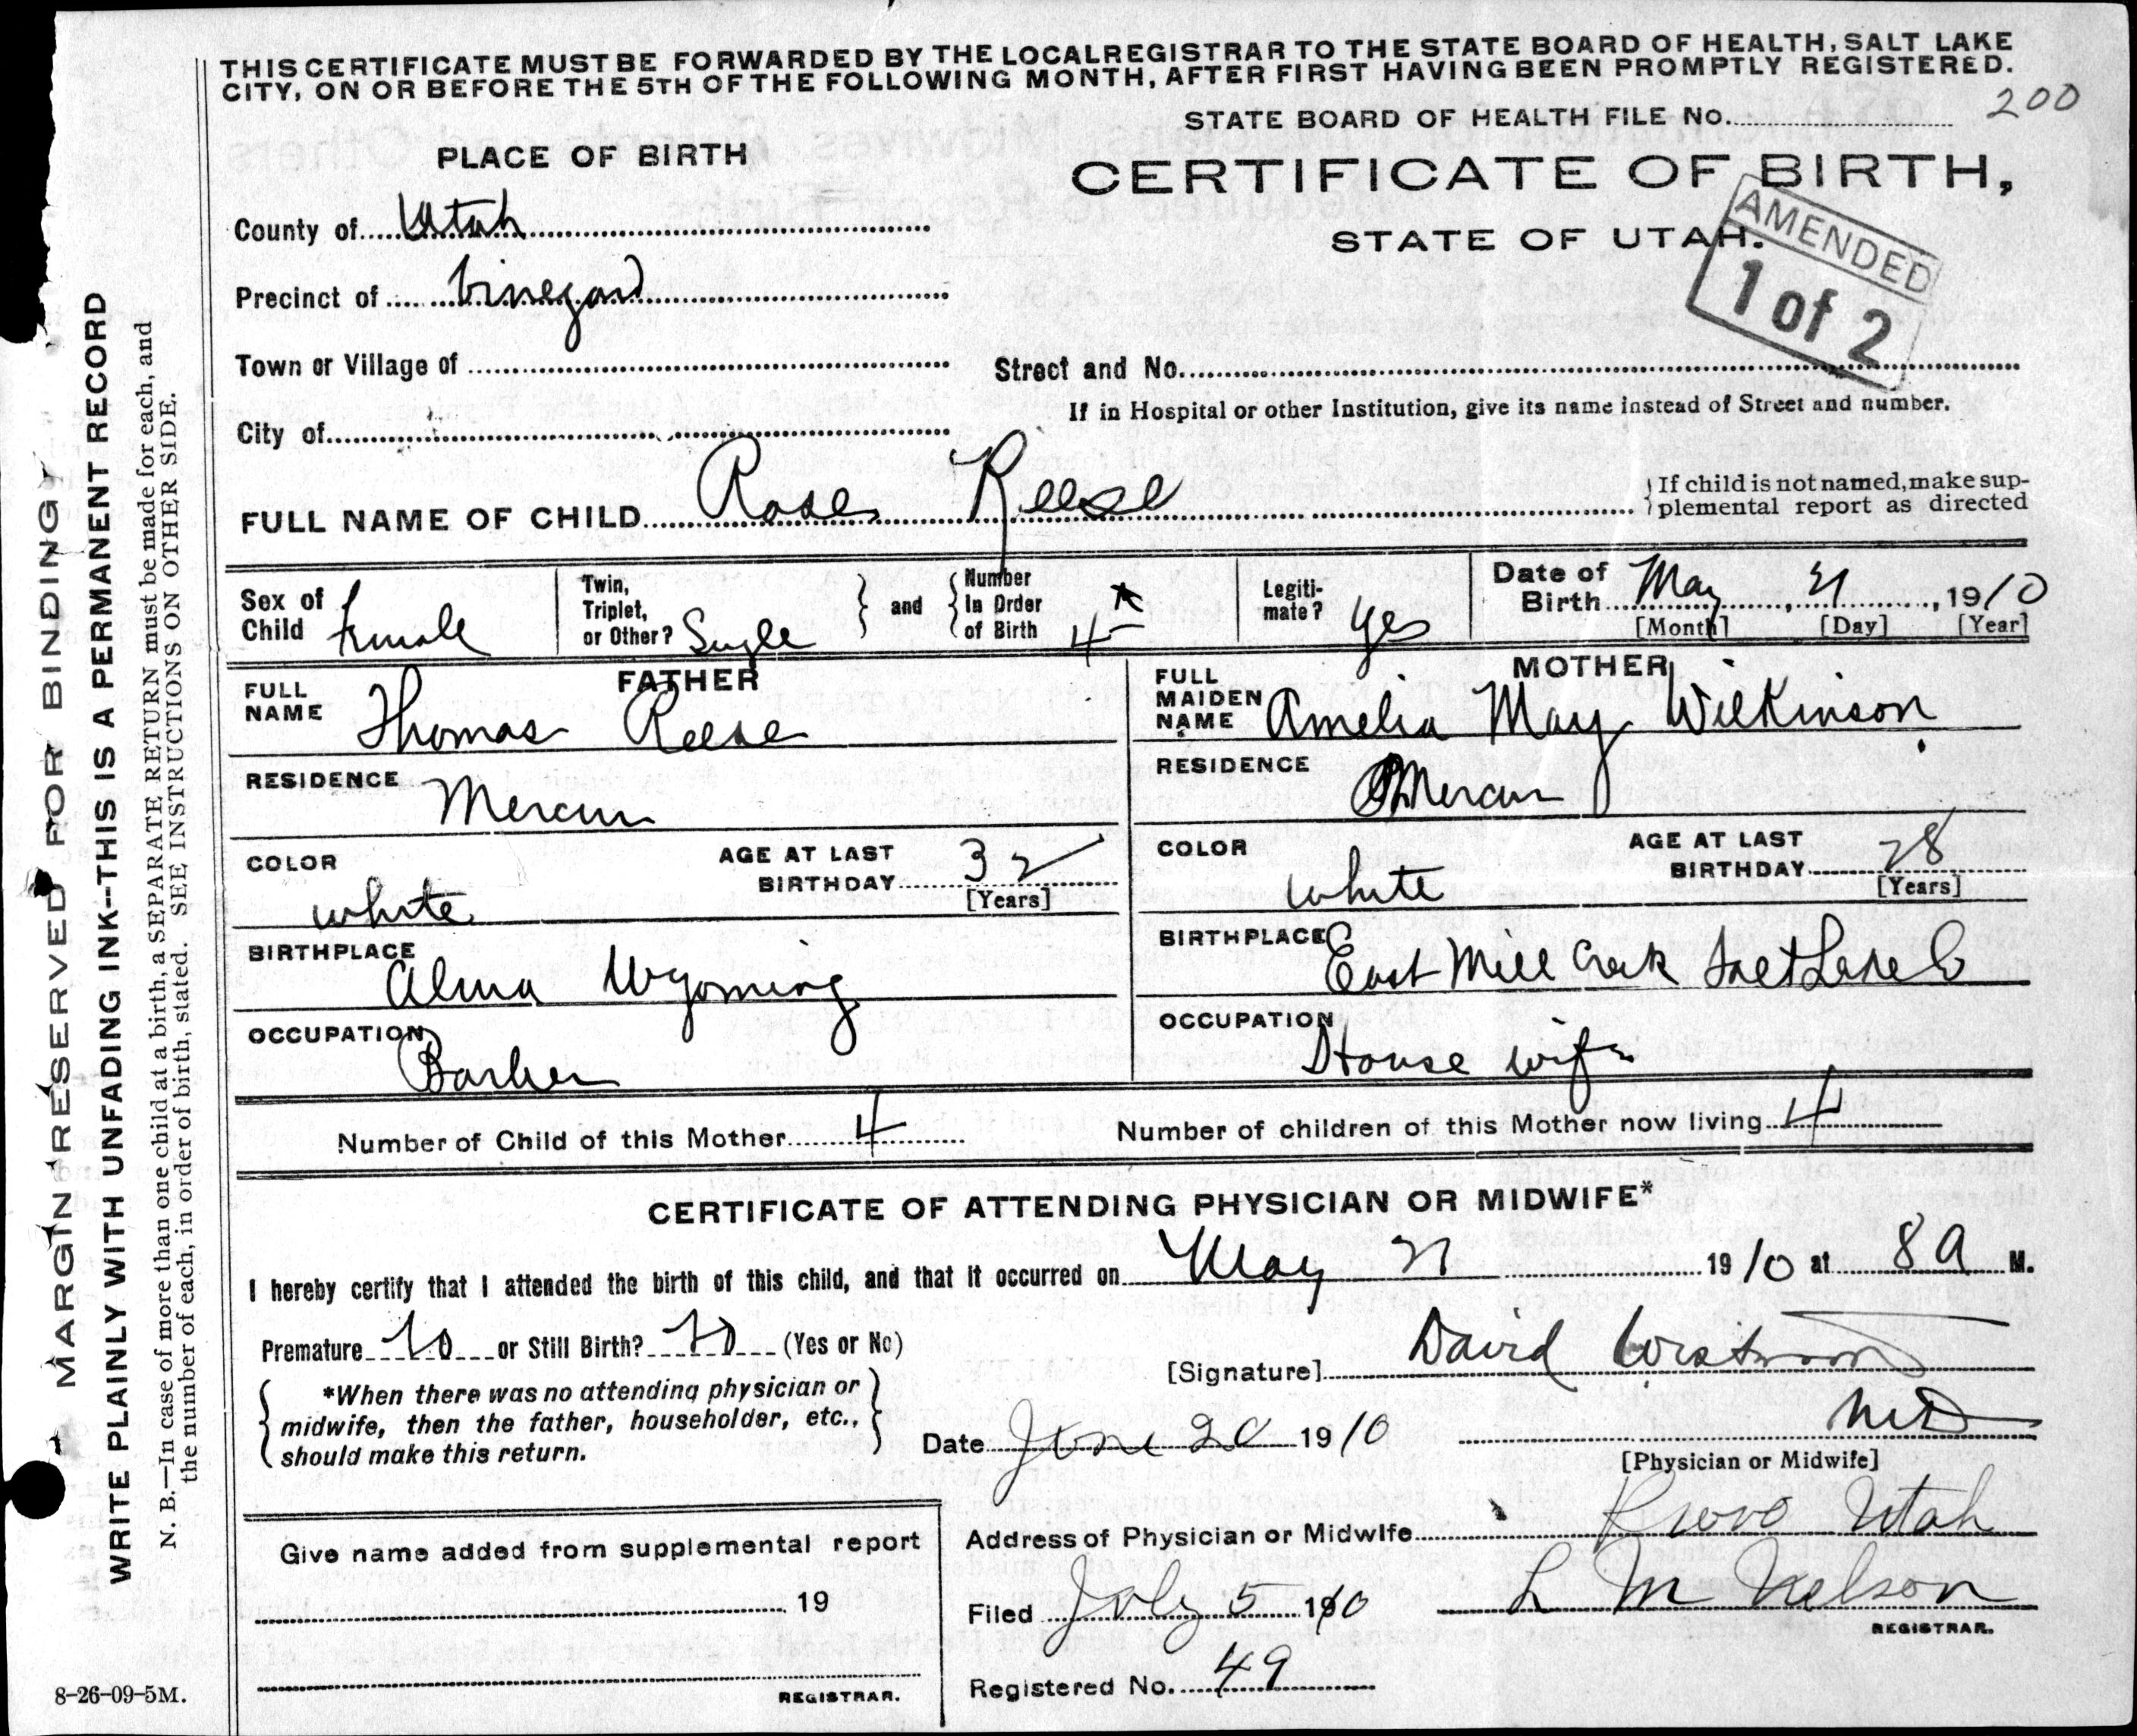 THIS CERTIFICATE MUST BE FORWARDED BY THE LOCAL REGISTRAR TO THE STATE BOARD OF HEALTH, SALT LAKE
CITY, ON OR BEFORE THE 5TH OF THE FOLLOWING MONTH, AFTER FIRST HAVING BEEN PROMPTLY REGISTERED.
STATE BOARD OF HEALTH FILE No. 200
PLACE OF BIRTH
CERTIFICATE OF BIRTH,
STATE OF UTAH.
AMENDED
1 of 2
County of Utah
Precinct of Vineyard
Town or Village of
Street and No.
If in Hospital or other Institution, give its name instead of Street and number.
City of
FULL NAME OF CHILD Rose Reese
If child is not named, make sup-
plemental report as directed
Sex of Child Female
Twin, Triplet, or Other? Single
and
Number In Order of Birth 4
Legiti-mate? yes
Date of Birth May, 21, 1910
[Month] [Day] [Year]
FATHER
FULL NAME Thomas Reese
RESIDENCE Mercur
COLOR white
AGE AT LAST BIRTHDAY 32
[Years]
BIRTHPLACE Alma Wyoming
OCCUPATION Barber
MOTHER
FULL MAIDEN NAME Amelia May Wilkinson
RESIDENCE Mercur
COLOR white
AGE AT LAST BIRTHDAY 28
[Years]
BIRTHPLACE East Mill Creek Salt Lake Co
OCCUPATION House wife
Number of Child of this Mother 4
Number of children of this Mother now living 4
CERTIFICATE OF ATTENDING PHYSICIAN OR MIDWIFE*
I hereby certify that I attended the birth of this child, and that it occurred on May 21 1910 at 8 A M.
Premature no or Still Birth? no (Yes or No)
[Signature] David Westwood
*When there was no attending physician or
midwife, then the father, householder, etc.,
should make this return.
Date June 20 1910
MD
[Physician or Midwife]
Address of Physician or Midwife Provo Utah
Give name added from supplemental report
19
REGISTRAR.
Filed July 5 1910
L M Nelson
REGISTRAR.
Registered No. 49
8-26-09-5M.
MARGIN RESERVED FOR BINDING
WRITE PLAINLY WITH UNFADING INK--THIS IS A PERMANENT RECORD
N. B.—In case of more than one child at a birth, a SEPARATE RETURN must be made for each, and
the number of each, in order of birth, stated. SEE INSTRUCTIONS ON OTHER SIDE.